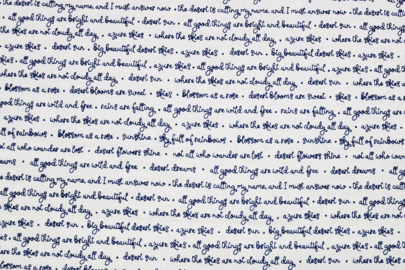 the desert is calling my name, and I must answer now • the desert is calling my name, and I must answer now • the desert is calling
all good things are bright and beautiful • desert sun • all good things are bright and beautiful • desert sun • all good
the skies are not cloudy all day • azure skies • where the skies are not cloudy all day • azure skies • where the
azure skies • desert sun • big beautiful desert skies • azure skies • desert sun • big beautiful desert skies • azure
skies • all good things are bright and beautiful • azure skies • all good things are bright and beautiful • azure skies • all good
the skies are not cloudy all day • desert sun • where the skies are not cloudy all day • desert sun • where the skies
blossom as a rose • desert blooms are sweet • skies • blossom as a rose • desert blooms are sweet • skies • blossom
good things are wild and free • rains are falling • all good things are wild and free • rains are falling • all good
azure skies • where the skies are not cloudy all day • azure skies • where the skies are not cloudy all day
full of rainbows • blossom as a rose • sunshine • sky full of rainbows • blossom as a rose • sunshine • sky full of
not all who wander are lost • desert flowers shine • not all who wander are lost • desert flowers shine • not all who
dreams • all good things are wild and free • desert dreams • all good things are wild and free • desert dreams • all good
the desert is calling my name, and I must answer now • the desert is calling my name, and I must answer now • the desert is calling
all good things are bright and beautiful • desert sun • all good things are bright and beautiful • desert sun • all good
the skies are not cloudy all day • azure skies • where the skies are not cloudy all day • azure skies • where the
azure skies • desert sun • big beautiful desert skies • azure skies • desert sun • big beautiful desert skies
skies • all good things are bright and beautiful • azure skies • all good things are bright and beautiful • azure skies • all good
the skies are not cloudy all day • desert sun • where the skies are not cloudy all day • desert sun • where the
blossom as a rose • desert blooms are sweet • skies • blossom as a rose • desert blooms